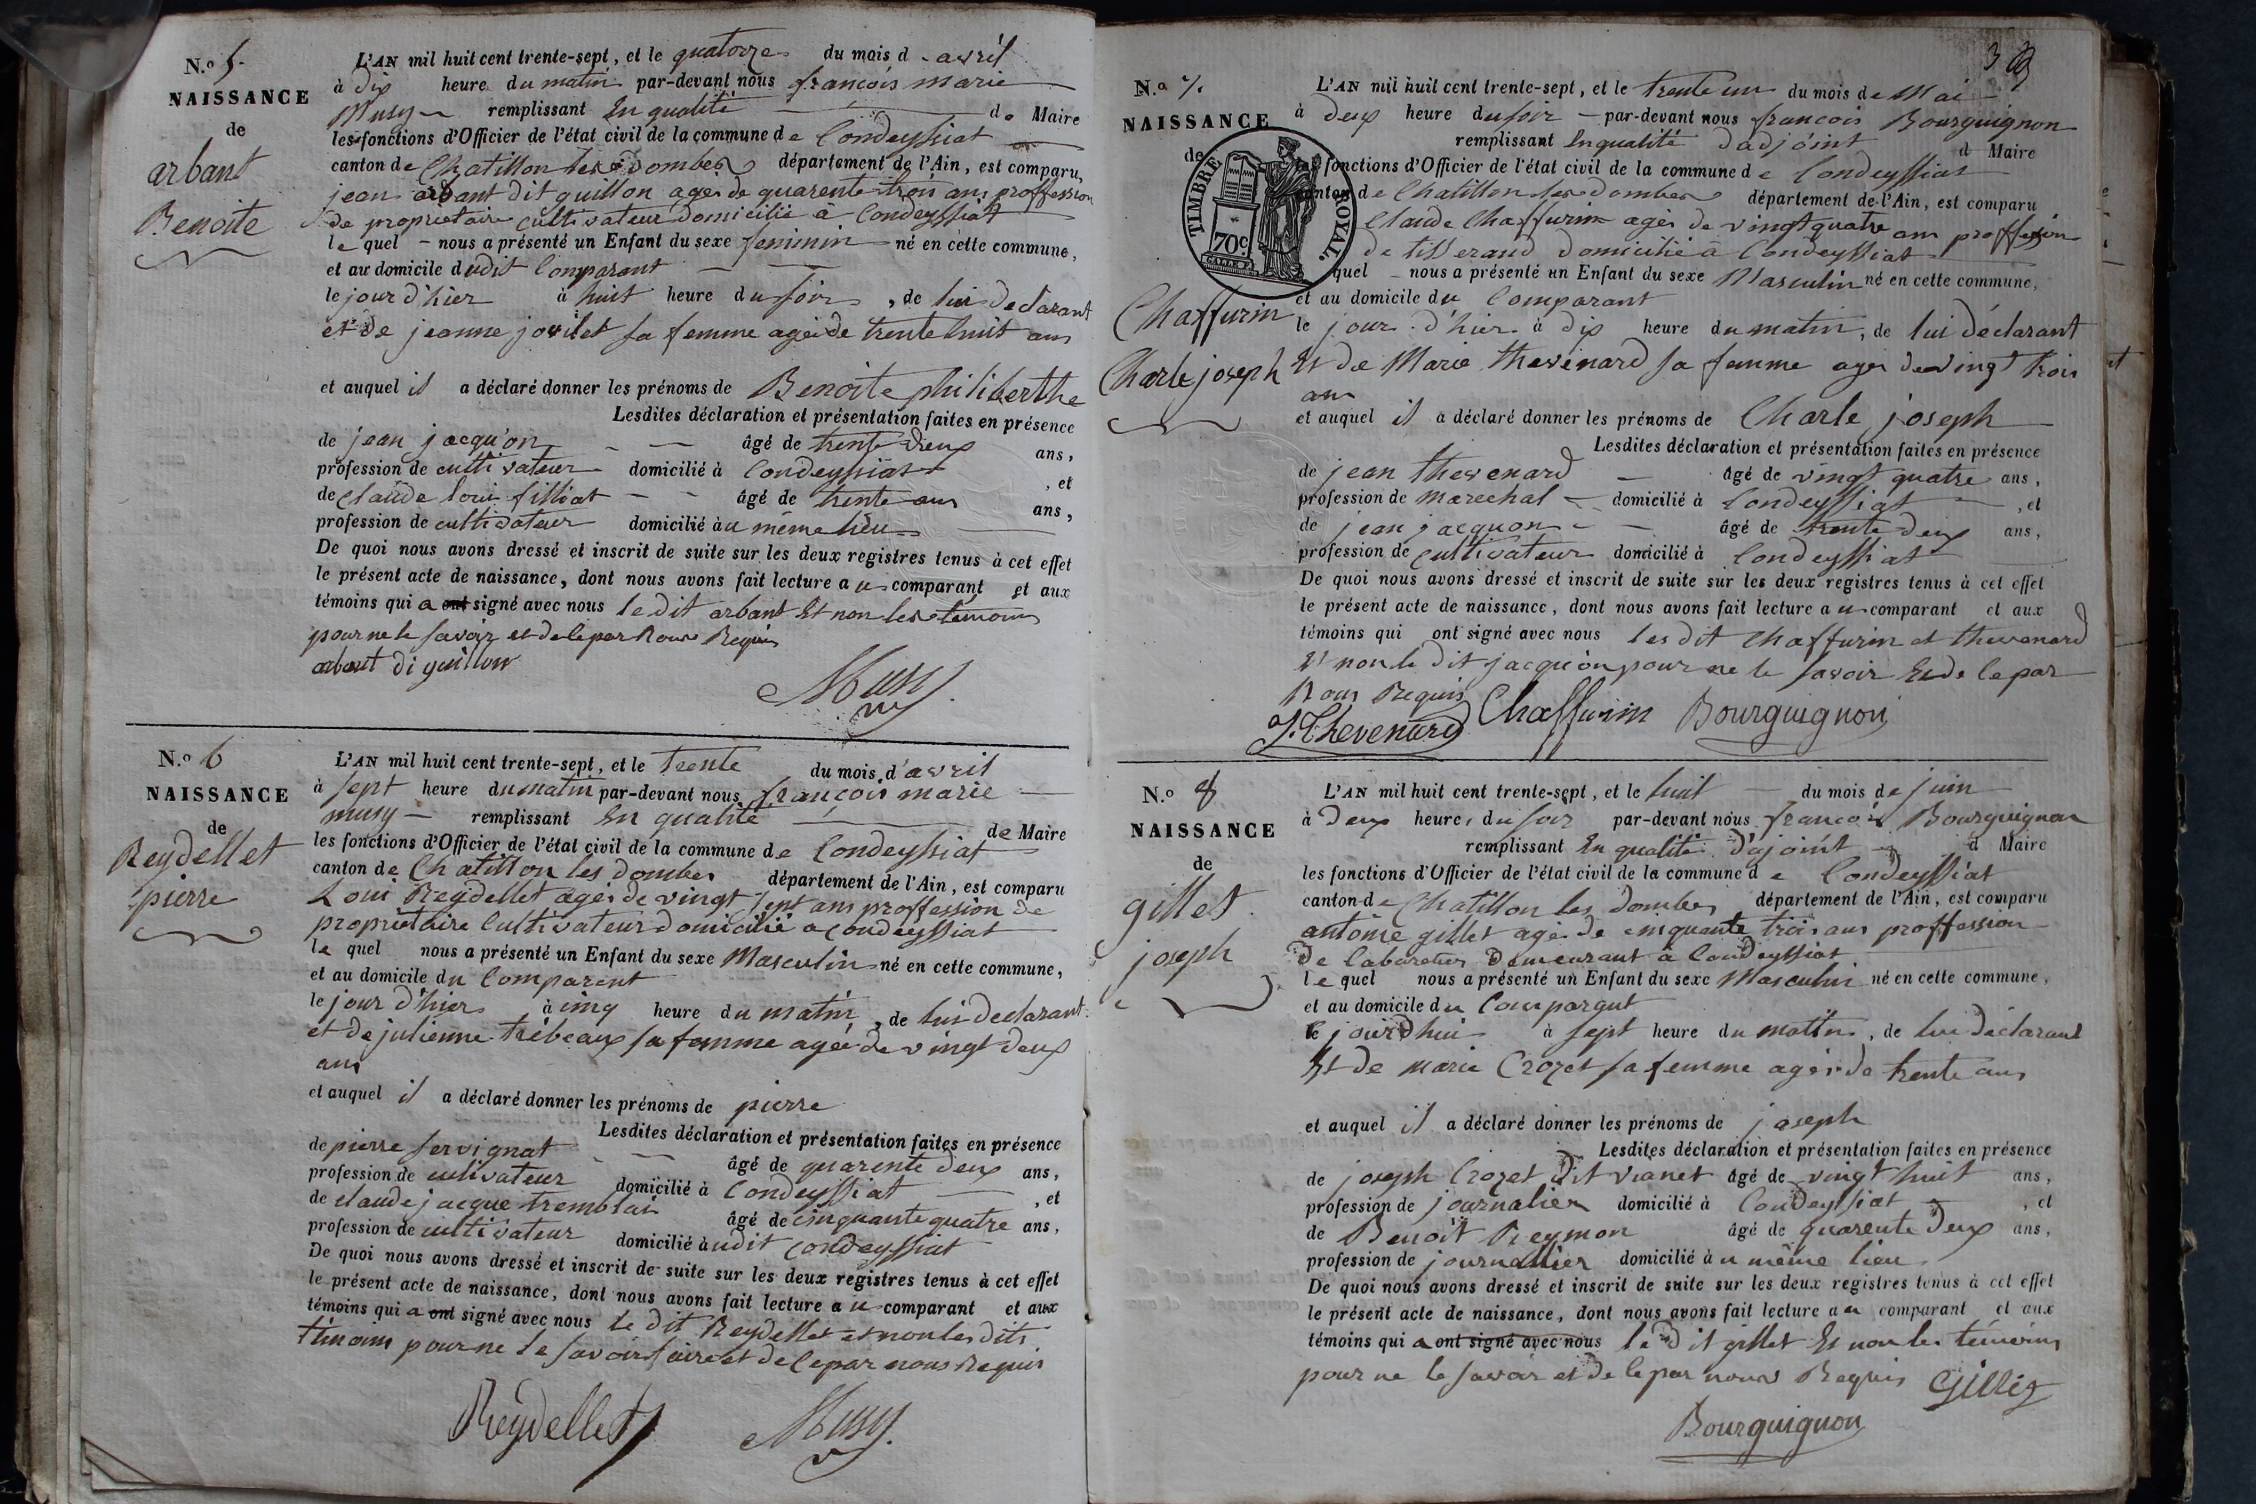 N.o 5.
NAISSANCE
de
arbant
Benoite
L'AN mil huit cent trente-sept, et le quatorze du mois d avril
à dix heure du matin par-devant nous francois marie
Musy remplissant En qualité de Maire
les fonctions d'Officier de l'état civil de la commune de Condeyssiat
canton de Chatillon les Dombes département de l'Ain, est comparu,
jean arbant dit guillon agés de quarente trois ans proffession
de proprietaire cultivateur domicilié à Condeyssiat
le quel nous a présenté un Enfant du sexe feminin né en cette commune,
et au domicile dudit Comparant
le jour d'hier à huit heure du soir, de lui declarant
et de jeanne jovilet sa femme ageé de trente huit ans
et auquel il a déclaré donner les prénoms de Benoite philiberthe
Lesdites déclaration et présentation faites en présence
de jean jacqu'on âgé de trente deux ans,
profession de cultivateur domicilié à Condeyssiat , et
de claude loui filliat âgé de trente ans ans,
profession de cultivateur domicilié àu même lieu
De quoi nous avons dressé et inscrit de suite sur les deux registres tenus à cet effet
le présent acte de naissance, dont nous avons fait lecture au comparant et aux
témoins qui a ont signé avec nous le dit arbant Et non les témoins
pour ne le savoir et de le par Nous Requis
arbant di guillon
Musy
N.o 6
NAISSANCE
de
Reydellet
pierre
L'AN mil huit cent trente-sept, et le trente du mois d'avril
à sept heure du matin par-devant nous françois marie
musy remplissant En qualité de Maire
les fonctions d'Officier de l'état civil de la commune de Condeyssiat
canton de Chatillon les dombes département de l'Ain, est comparu
Loui Reydellet agés de vingt sept ans proffession de
proprietaire Cultivateur domicilié a condeyssiat
le quel nous a présenté un Enfant du sexe Masculin né en cette commune,
et au domicile du Comparent
le jour d'hier à cinq heure du matin, de lui declarant
et de julienne trebeaux sa femme ageé de vingt deux
ans
et auquel il a déclaré donner les prénoms de pierre
Lesdites déclaration et présentation faites en présence
de pierre servignat âgé de quarente deux ans,
profession de cultivateur domicilié à Condeyssiat , et
de claude jacque tremblai âgé de cinquante quatre ans,
profession de cultivateur domicilié àudit condeyssiat
De quoi nous avons dressé et inscrit de suite sur les deux registres tenus à cet effet
le présent acte de naissance, dont nous avons fait lecture au comparant et aux
témoins qui a ont signé avec nous le dit Reydellet et non les dits
témoins pour ne le savoir faire et de le par nous Requis
Reydellet
Musy
N.o 7.
NAISSANCE
de
TIMBRE ROYAL.
70c
Chaffurin
Charle joseph
L'AN mil huit cent trente-sept, et le trente un du mois de Mai
à deux heure du soir par-devant nous francois Bourguignon
remplissant En qualité d'adjoint d Maire
fonctions d'Officier de l'état civil de la commune de Condeyssiat
canton de Chatillon les dombes département de l'Ain, est comparu
Claude Chaffurin agés de vingt quatre ans proffession
de tisserand domicilié à Condeyssiat
quel nous a présenté un Enfant du sexe Masculin né en cette commune,
et au domicile du Comparant
le jour d'hier à dix heure du matin, de lui déclarant
Et de Marie thevenard sa femme agés de vingt trois
ans
et auquel il a déclaré donner les prénoms de Charle joseph
Lesdites déclaration et présentation faites en présence
de jean thevenard âgé de vingt quatre ans,
profession de marechal domicilié à Condeyssiat , et
de jean jacquon âgé de trente deux ans,
profession de cultivateur domicilié à Condeyssiat
De quoi nous avons dressé et inscrit de suite sur les deux registres tenus à cet effet
le présent acte de naissance, dont nous avons fait lecture au comparant et aux
témoins qui ont signé avec nous les dit Chaffurin et thevenard
Et non le dit jacqu'on pour ne le savoir Et de le par
Nous Requis
J. Thevenard Chaffurin Bourguignon
N.o 8
NAISSANCE
de
gillet
joseph
L'AN mil huit cent trente-sept, et le huit du mois de juin
à deux heure du soir par-devant nous francois Bourguignon
remplissant En qualité d'ajoint d Maire
les fonctions d'Officier de l'état civil de la commune de Condeyssiat
canton de Chatillon les dombes département de l'Ain, est comparu
antoine gillet agé de cinquante trois ans proffession
de laboureur demeurant à Condeyssiat
le quel nous a présenté un Enfant du sexe Masculin né en cette commune,
et au domicile du Comparant
le jourdhui à sept heure du matin, de lui déclarant
Et de marie Crozet sa femme agés de trente ans
et auquel il a déclaré donner les prénoms de joseph
Lesdites déclaration et présentation faites en présence
de joseph Crozet dit vianet âgé de vingt huit ans,
profession de journalier domicilié à Condeyssiat , et
de Benoit Reymon âgé de quarente deux ans,
profession de journallier domicilié àu même lieu
De quoi nous avons dressé et inscrit de suite sur les deux registres tenus à cet effet
le présent acte de naissance, dont nous avons fait lecture au comparant et aux
témoins qui a ont signé avec nous le dit gillet Et non les témoins
pour ne le savoir et de le par nous Requis Gillet
Bourguignon